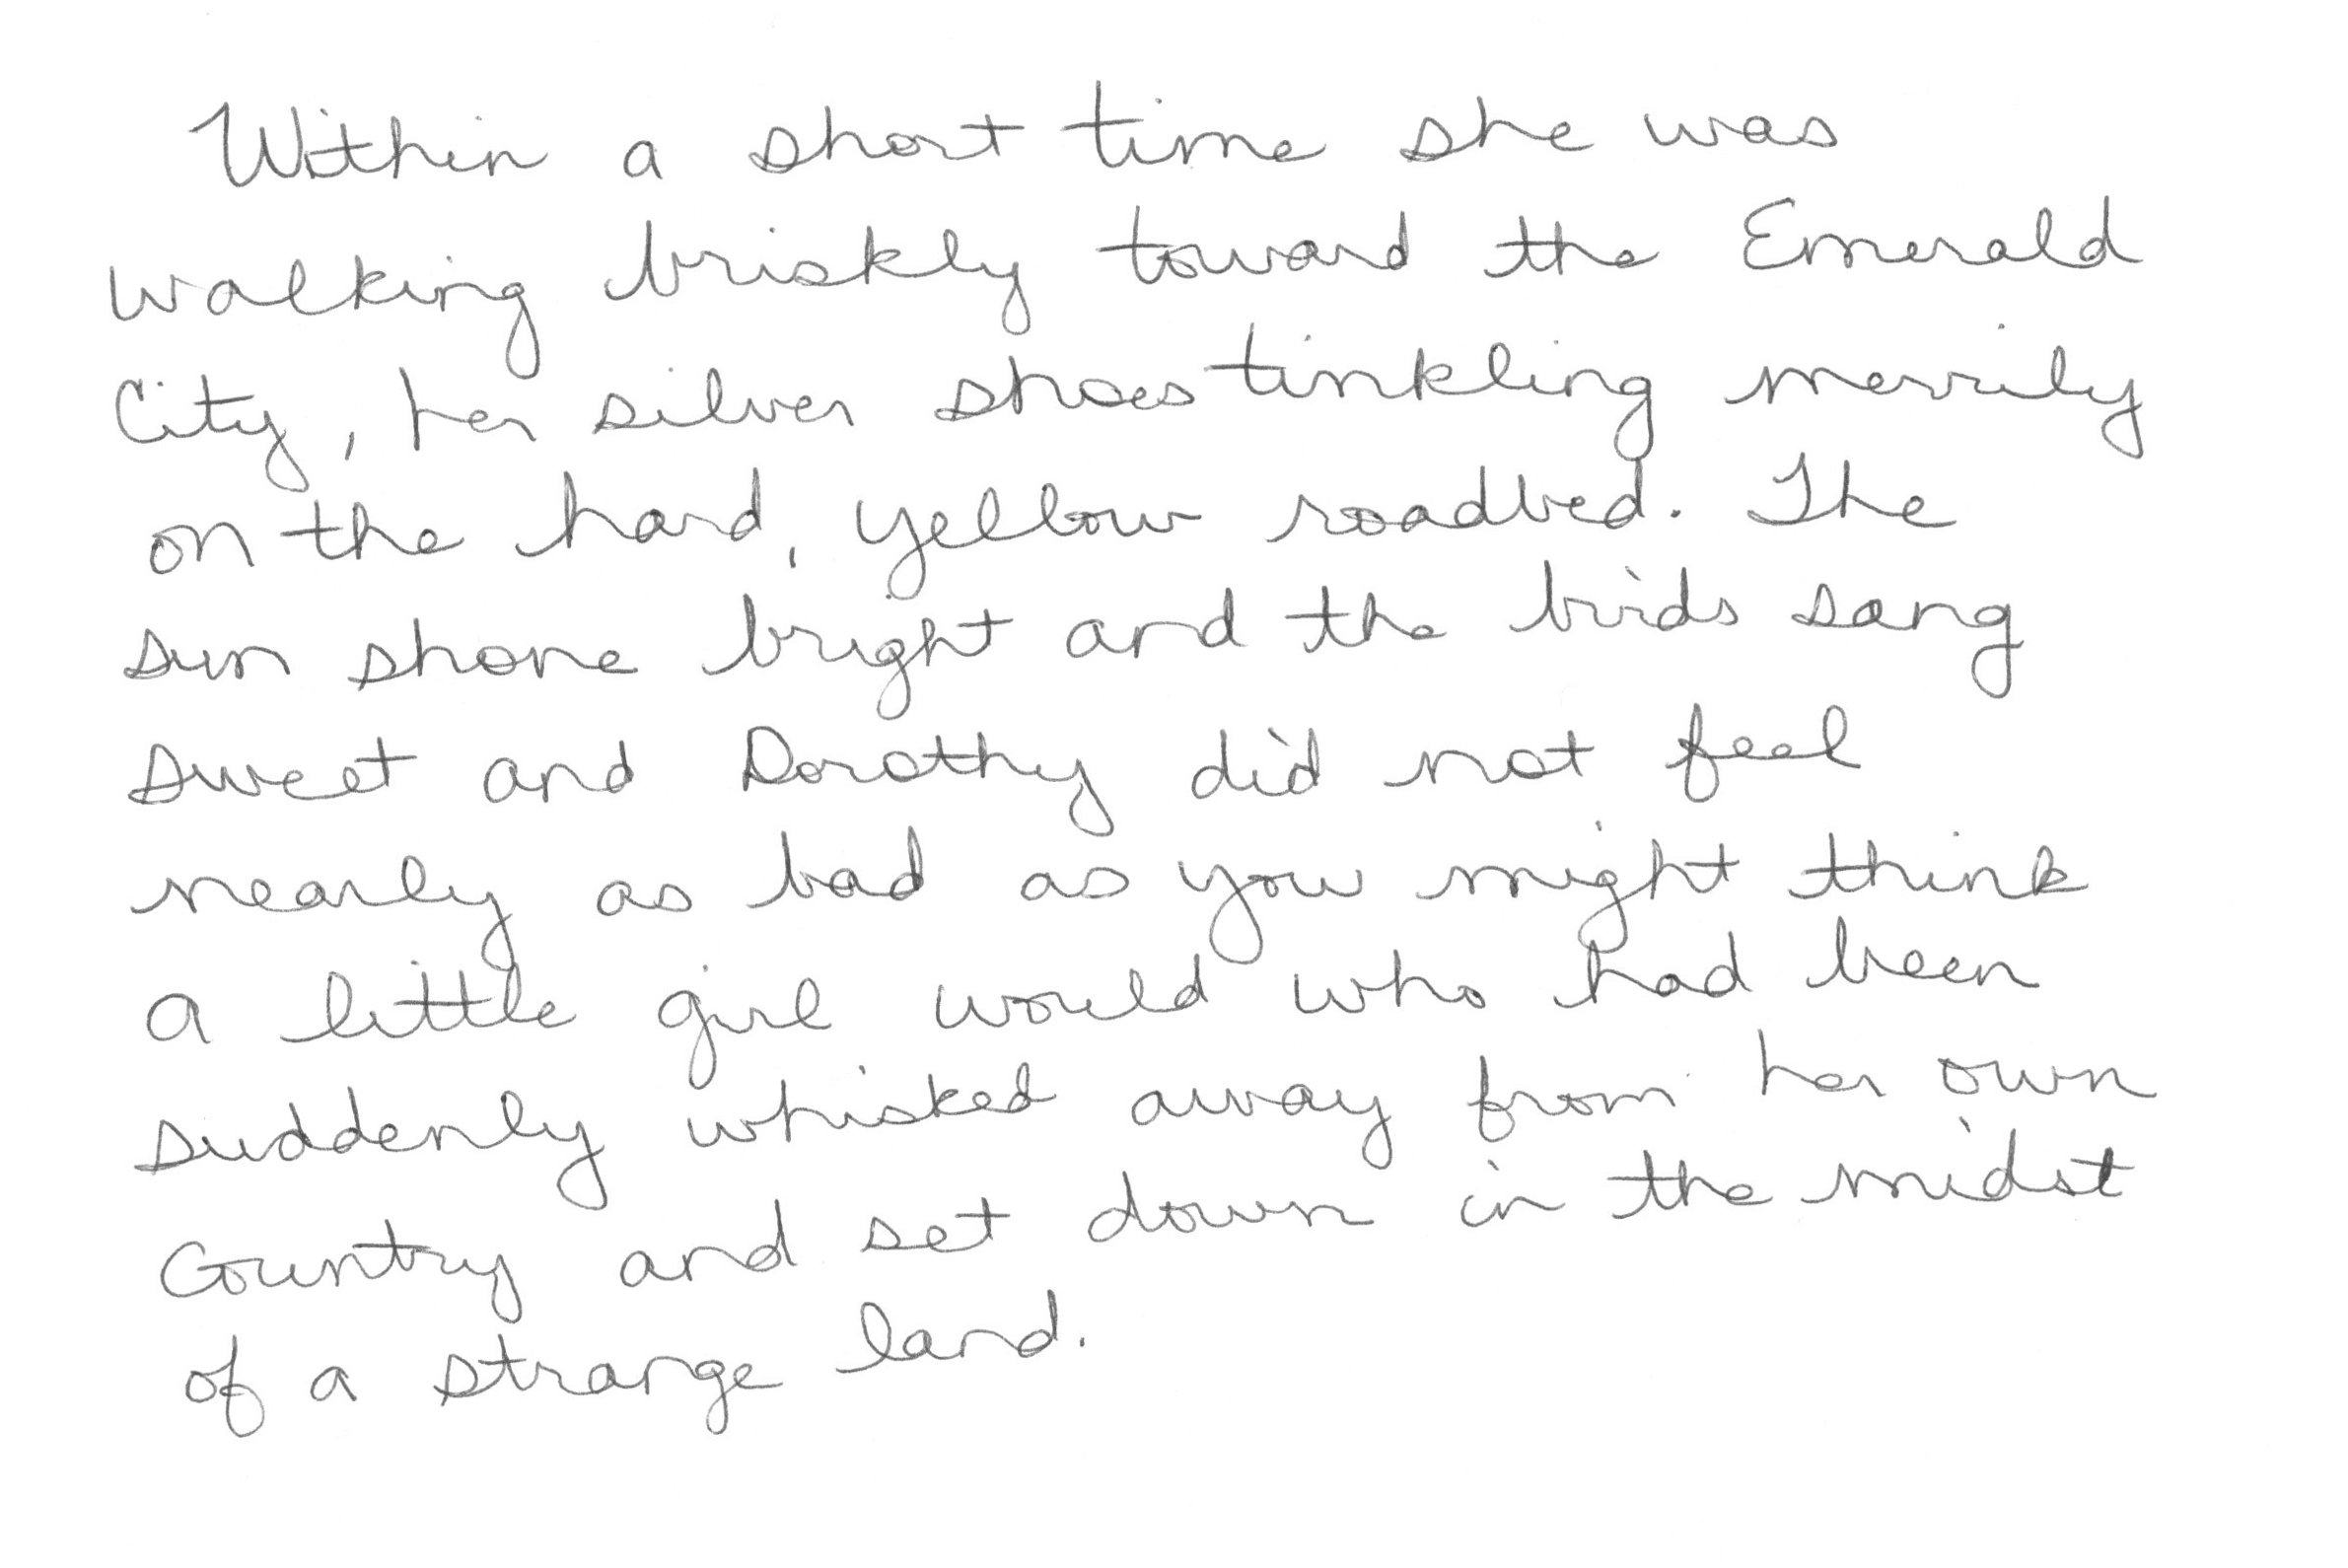 Within a short time she was
walking briskly toward the Emerald
City, her silver shoes tinkling merrily
on the hard, yellow roadbed. The
sun shone bright and the birds sang
sweet and Dorothy did not feel
nearly as bad as you might think
a little girl would who had been
suddenly whisked away from her own
country and set down in the midst
of a strange land.